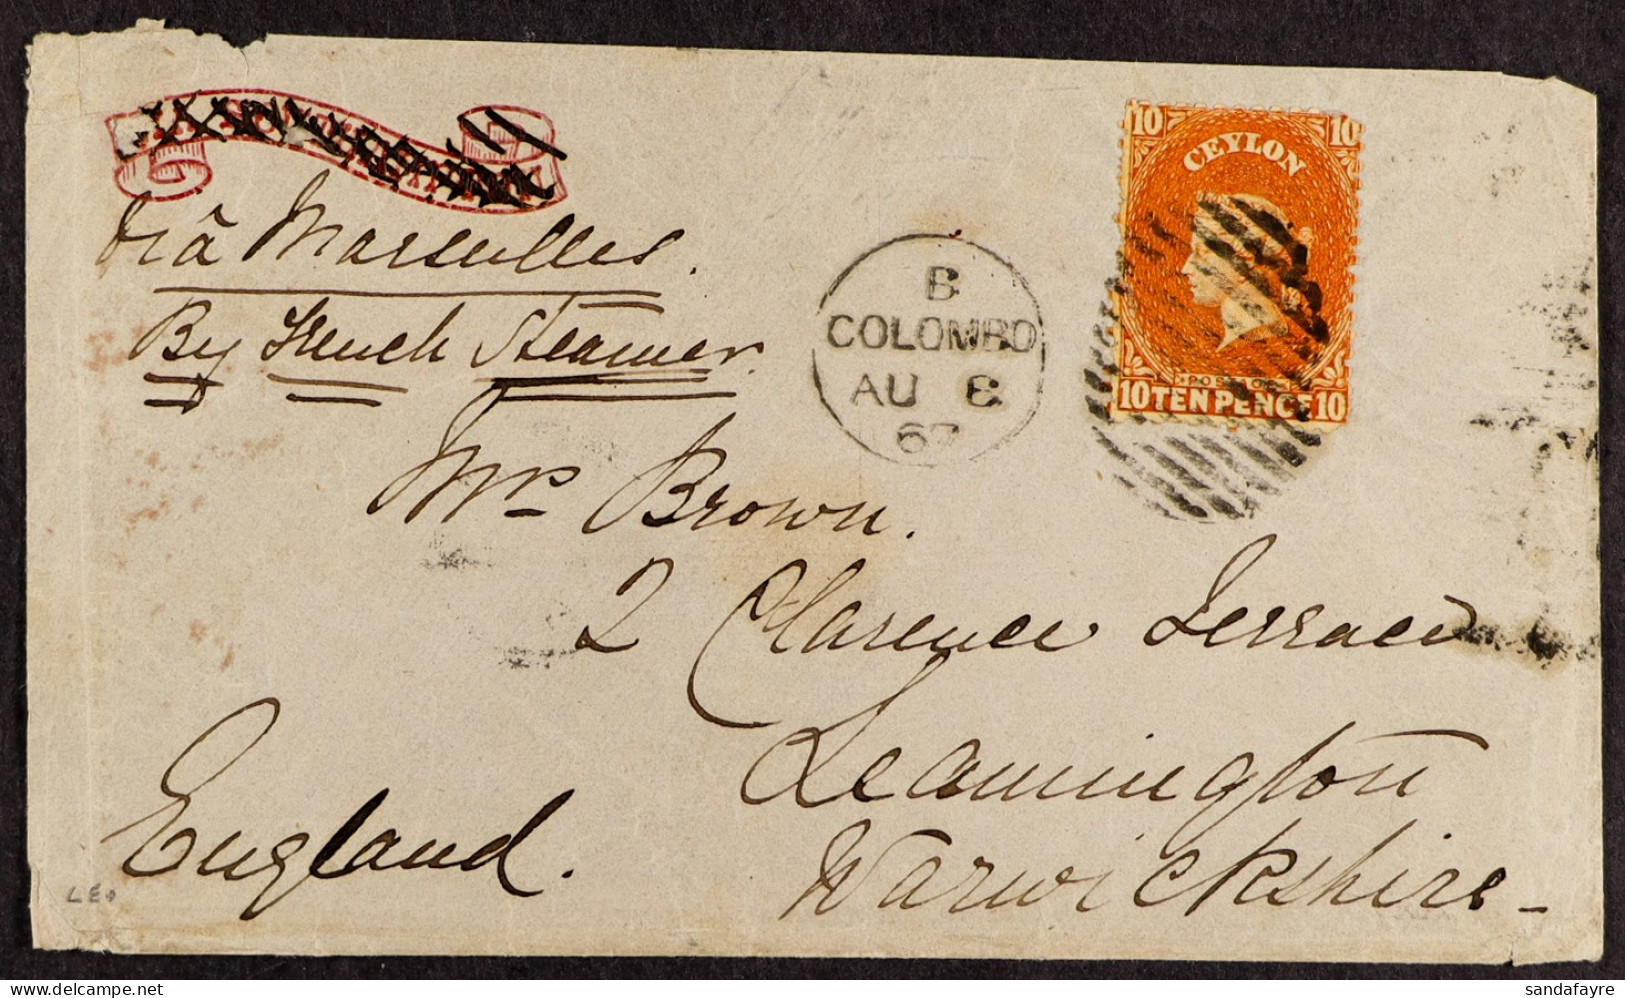 Viâ Marseilles.
By French Steamer.
B
COLOMBO
AU 8
67
10 10
CEYLON
POSTAGE
10 TEN PENCE 10
Mrs Brown.
2 Clarence Terrace
Leamington
Warwickshire -
England.
LEO
sandafayre